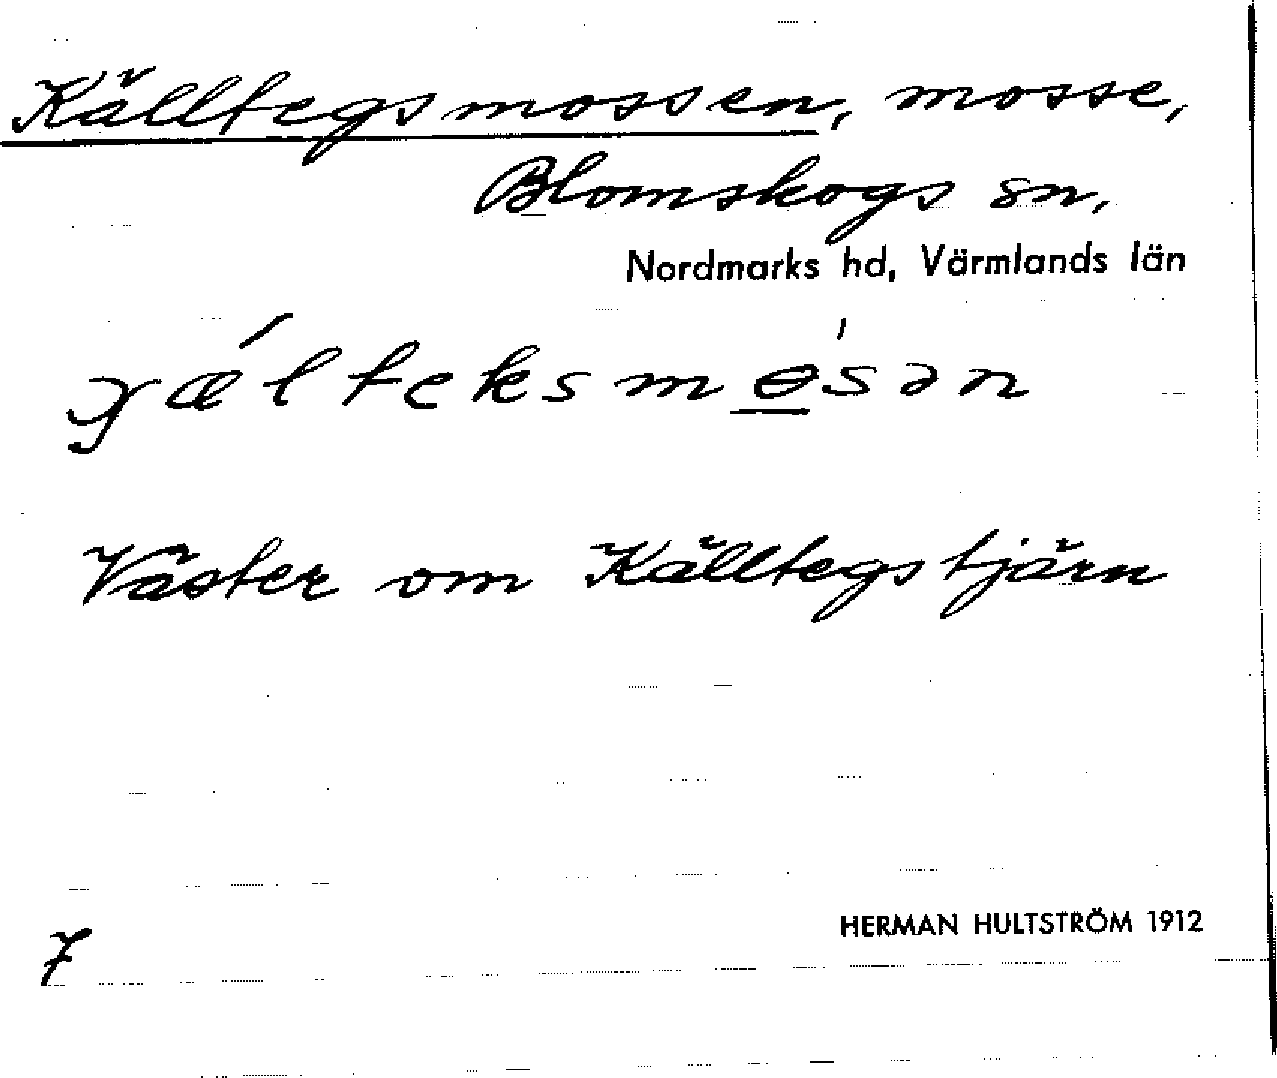 Källtegsmossen, mosse,
Blomskogs sn,
Nordmarks hd, Värmlands län
Väster om Källtegstjärn
HERMAN HULTSTRÖM 1912
7